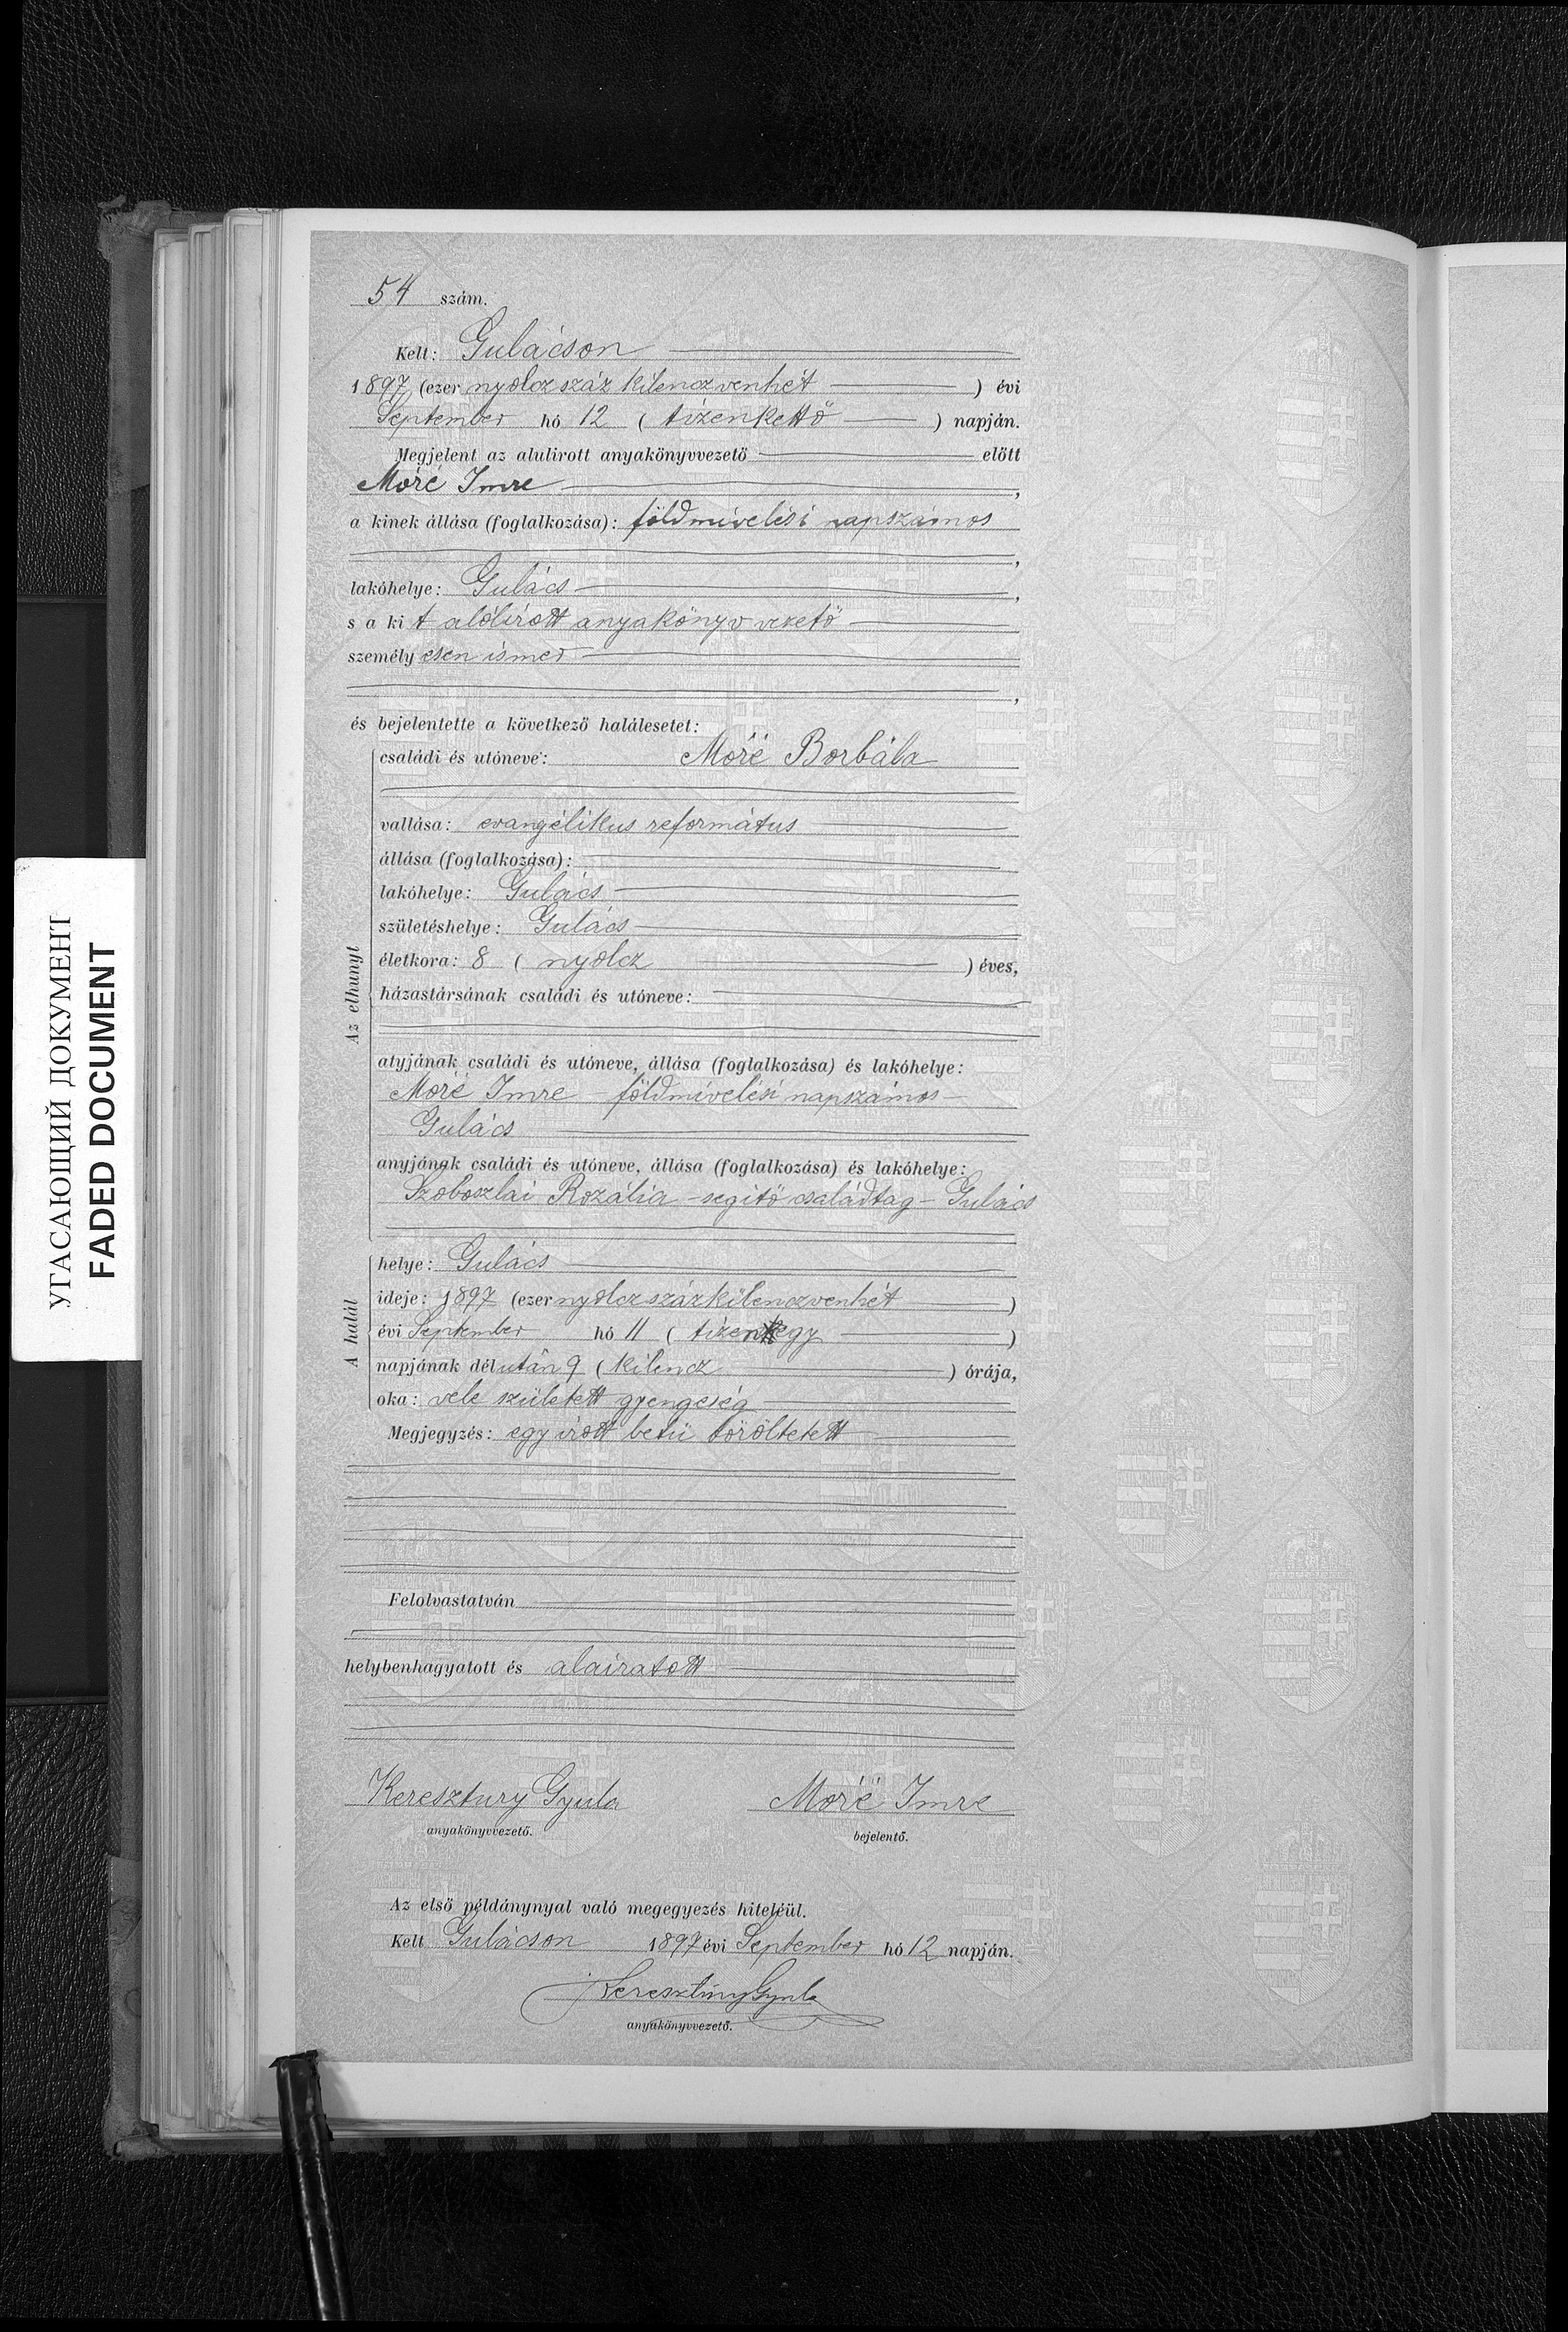 54 szám.
Kelt: Gulácson
1897 (ezer nyolcz száz kilenczvenhét ) évi
September hó 12 ( tizenkettő ) napján.
Megjelent az alulirott anyakönyvvezető előtt
Móré Imre ,
a kinek állása (foglalkozása): földmívelési napszámos
,
lakóhelye: Gulács ,
s a kit alólírott anyakönyv vezető
személyesen ismer
,
és bejelentette a következő halálesetet:
családi és utóneve: Móré Borbála
vallása: evangélikus református
állása (foglalkozása):
lakóhelye: Gulács
születéshelye: Gulács
életkora: 8 ( nyolcz ) éves,
házastársának családi és utóneve:
Az elhunyt
atyjának családi és utóneve, állása (foglalkozása) és lakóhelye:
Móré Imre – földmívelési napszámos –
Gulács
anyjának családi és utóneve, állása (foglalkozása) és lakóhelye:
Szoboszlai Rozália – segítő családtag – Gulács
helye: Gulács
ideje: 1897 (ezer nyolcz száz kilenczvenhét )
évi September hó 11 ( tizenegy )
A halál
napjának délután 9 ( kilencz ) órája,
oka: vele született gyengeség
Megjegyzés: egy írott betü töröltetett
Felolvastatván
helybenhagyatott és aláiratott
Keresztury Gyula Móré Imre
anyakönyvvezető. bejelentő.
Az első példánynyal való megegyezés hiteléül.
Kelt Gulácson 1897 évi September hó 12 napján.
Keresztury Gyula
anyakönyvvezető.
УГАСАЮЩИЙ ДОКУМЕНТ
FADED DOCUMENT